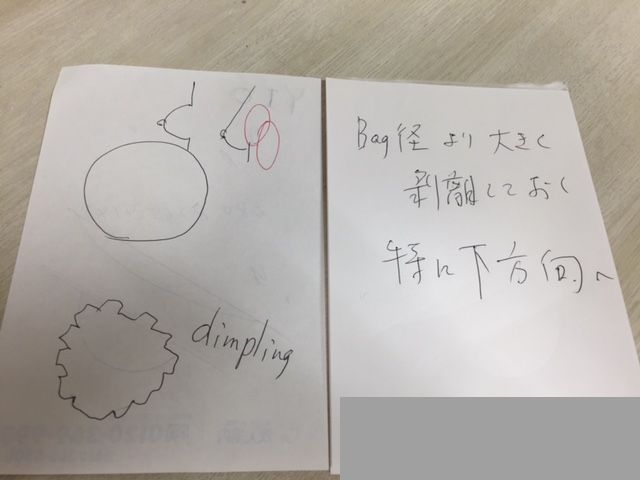 dimpling
Bag径より大きく
剥離しておく
特に下方向へ